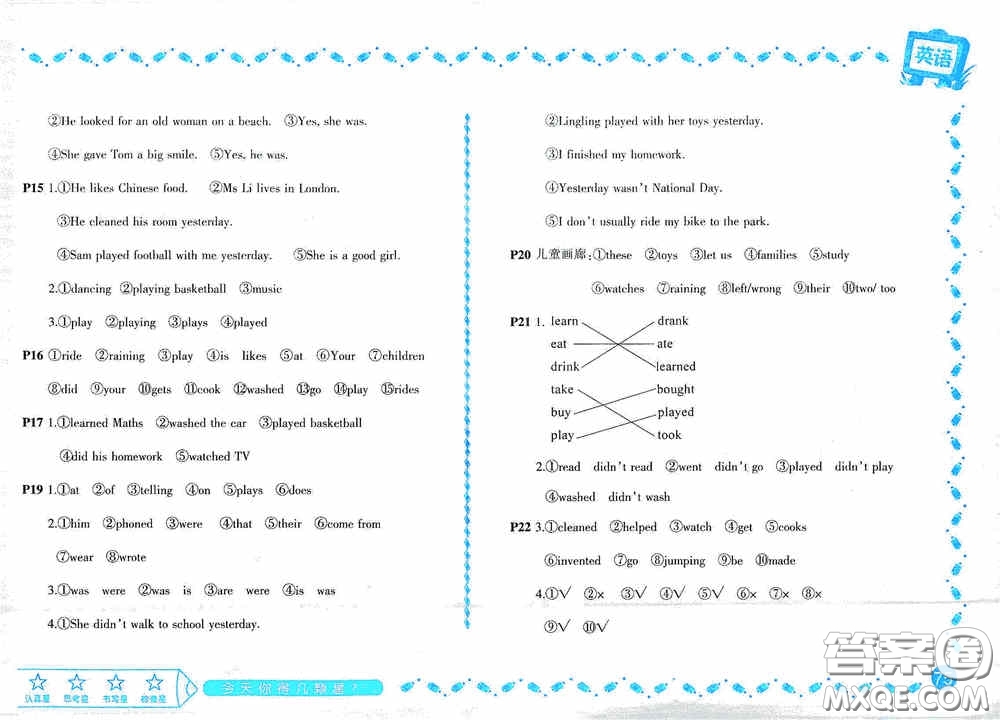 英语
②He looked for an old woman on a beach. ③Yes, she was.
④She gave Tom a big smile. ⑤Yes, he was.
P15 1.①He likes Chinese food. ②Ms Li lives in London.
③He cleaned his room yesterday.
④Sam played football with me yesterday. ⑤She is a good girl.
2.①dancing ②playing basketball ③music
3.①play ②playing ③plays ④played
P16 ①ride ②raining ③play ④is likes ⑤at ⑥Your ⑦children
⑧did ⑨your ⑩gets ⑪cook ⑫washed ⑬go ⑭play ⑮rides
P17 1.①learned Maths ②washed the car ③played basketball
④did his homework ⑤watched TV
P19 1.①at ②of ③telling ④on ⑤plays ⑥does
2.①him ②phoned ③were ④that ⑤their ⑥come from
⑦wear ⑧wrote
3.①was were ②was is ③are were ④is was
4.①She didn't walk to school yesterday.
②Lingling played with her toys yesterday.
③I finished my homework.
④Yesterday wasn't National Day.
⑤I don't usually ride my bike to the park.
P20 儿童画廊:①these ②toys ③let us ④families ⑤study
⑥watches ⑦raining ⑧left/wrong ⑨their ⑩two/ too
P21 1. learn drank
eat ate
drink learned
take bought
buy played
play took
2.①read didn't read ②went didn't go ③played didn't play
④washed didn't wash
P22 3.①cleaned ②helped ③watch ④get ⑤cooks
⑥invented ⑦go ⑧jumping ⑨be ⑩made
4.①√ ②× ③√ ④√ ⑤√ ⑥× ⑦× ⑧×
⑨√ ⑩√
认真星 思考星 书写星 检查星
今天你得几颗星?
答案圈
MXQE.COM